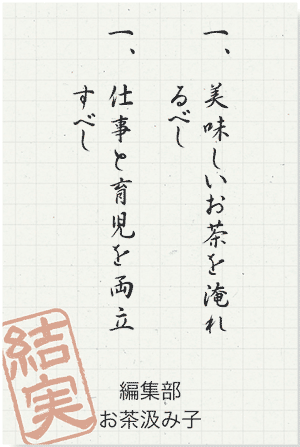 一、美味しいお茶を淹れ
るべし
一、仕事と育児を両立
すべし
結実
編集部
お茶汲み子